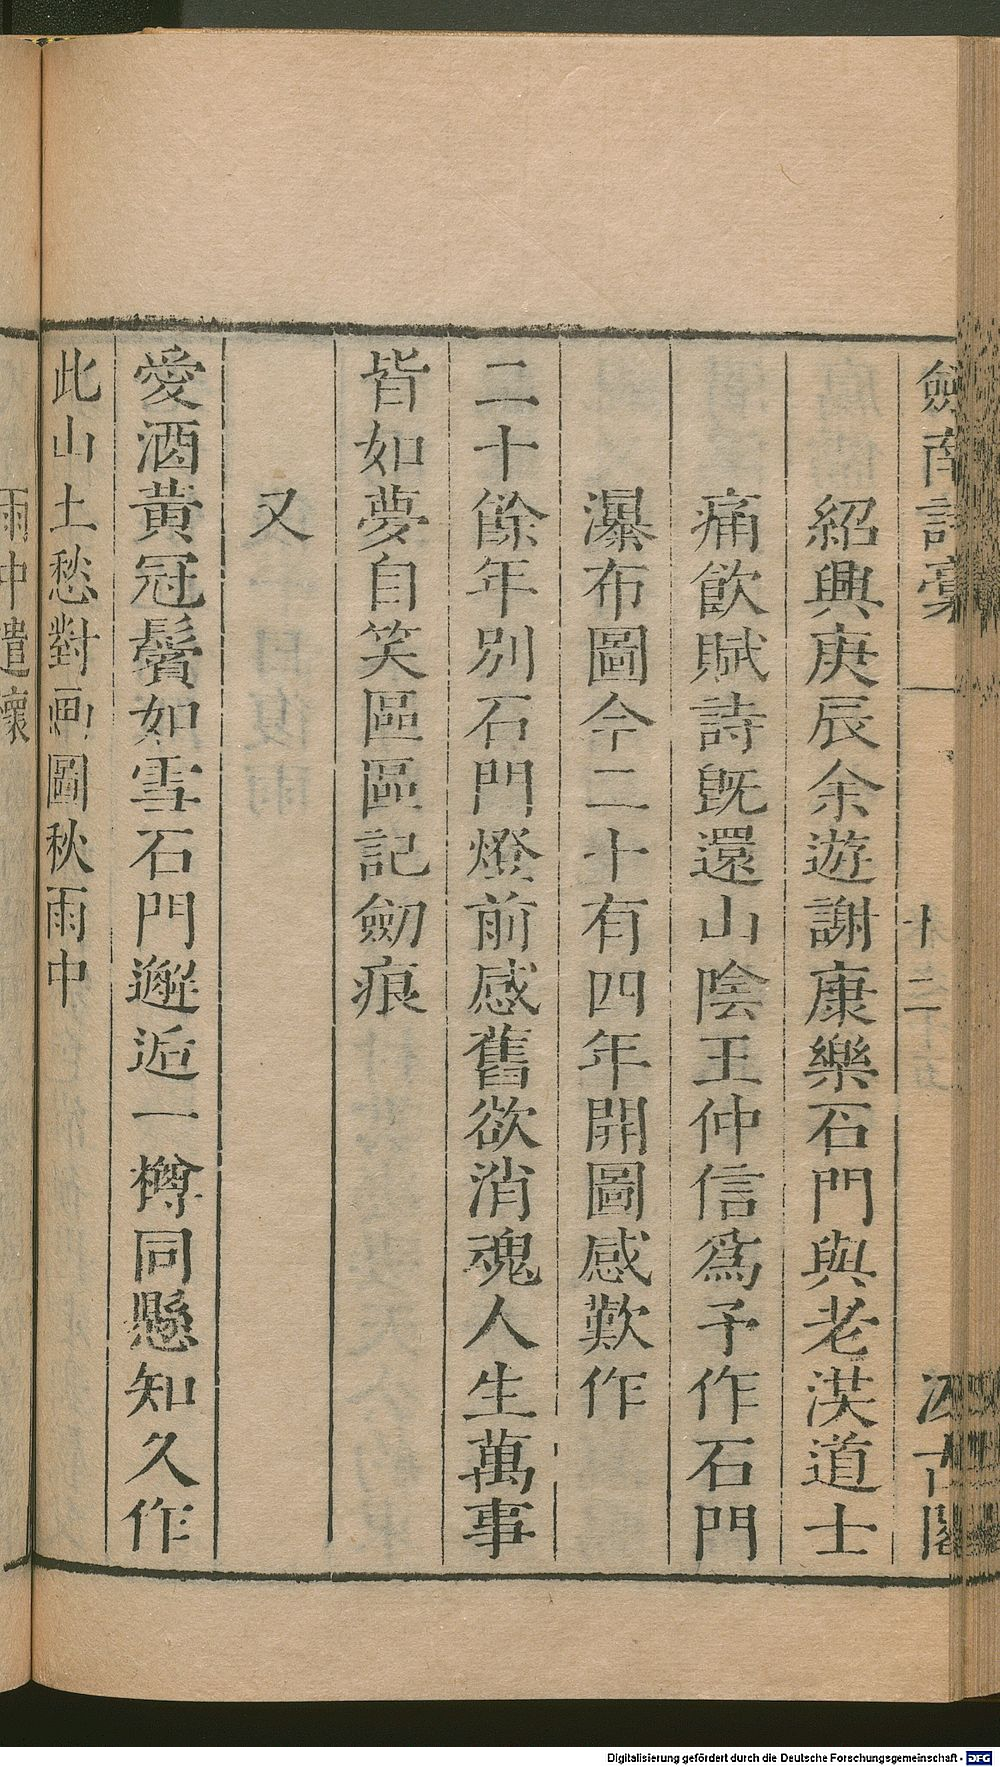 劍南詩稾
十二
汲古閣
紹興庚辰余遊謝康樂石門與老洪道士
痛飲賦詩旣還山陰王仲信爲予作石門
瀑布圖今二十有四年開圖感歎作
二十餘年別石門燈前感舊欲消魂人生萬事
皆如夢自笑區區記劒痕
又
愛酒黃冠鬢如雪石門邂逅一樽同懸知久作
此山土愁對画圖秋雨中
雨中遣懷
Digitalisierung gefördert durch die Deutsche Forschungsgemeinschaft - DFG